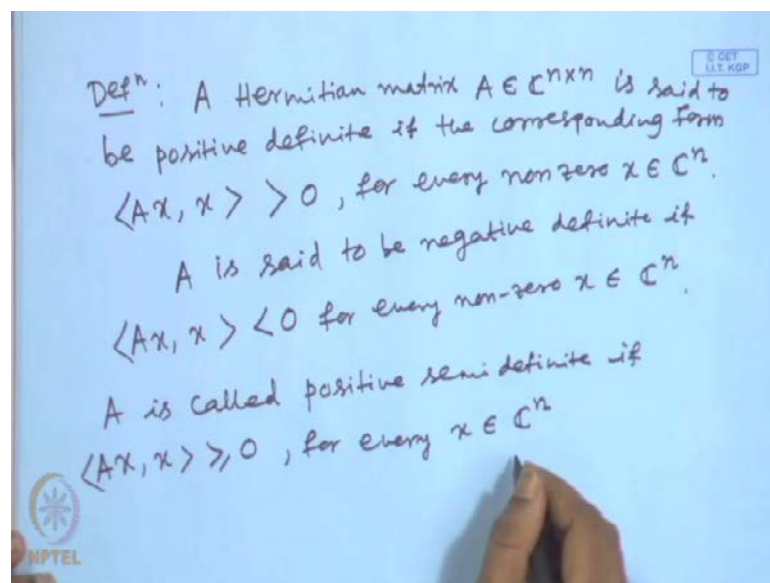 © CET
I.I.T. KGP
Defⁿ: A Hermitian matrix A ∈ ℂⁿˣⁿ is said to
be positive definite if the corresponding form
⟨Ax, x⟩ > 0, for every non zero x ∈ ℂⁿ.
A is said to be negative definite if
⟨Ax, x⟩ < 0 for every non-zero x ∈ ℂⁿ.
A is called positive semi definite if
⟨Ax, x⟩ ⩾ 0, for every x ∈ ℂⁿ
NPTEL